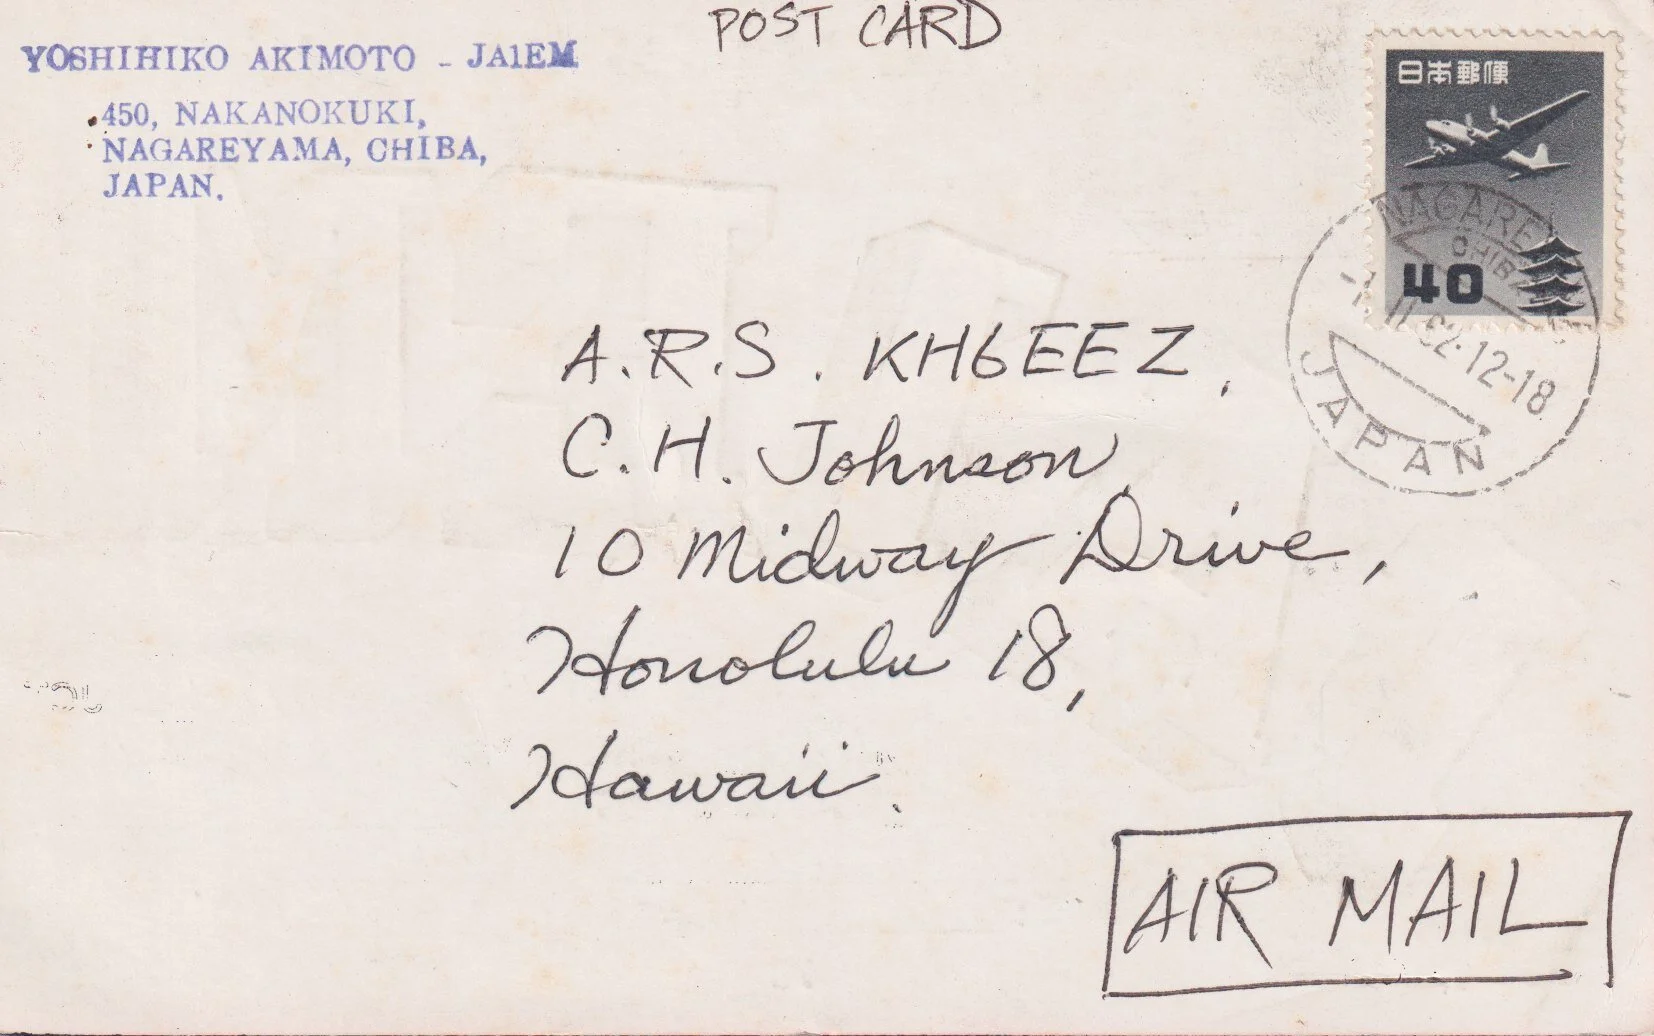 POST CARD
YOSHIHIKO AKIMOTO - JA1EM
450, NAKANOKUKI,
NAGAREYAMA, CHIBA,
JAPAN.
日本郵便
40
NAGARE
CHIB
62.12-18
JAPAN
A.R.S. KH6EEZ,
C.H. Johnson,
10 Midway Drive,
Honolulu 18,
Hawaii.
AIR MAIL